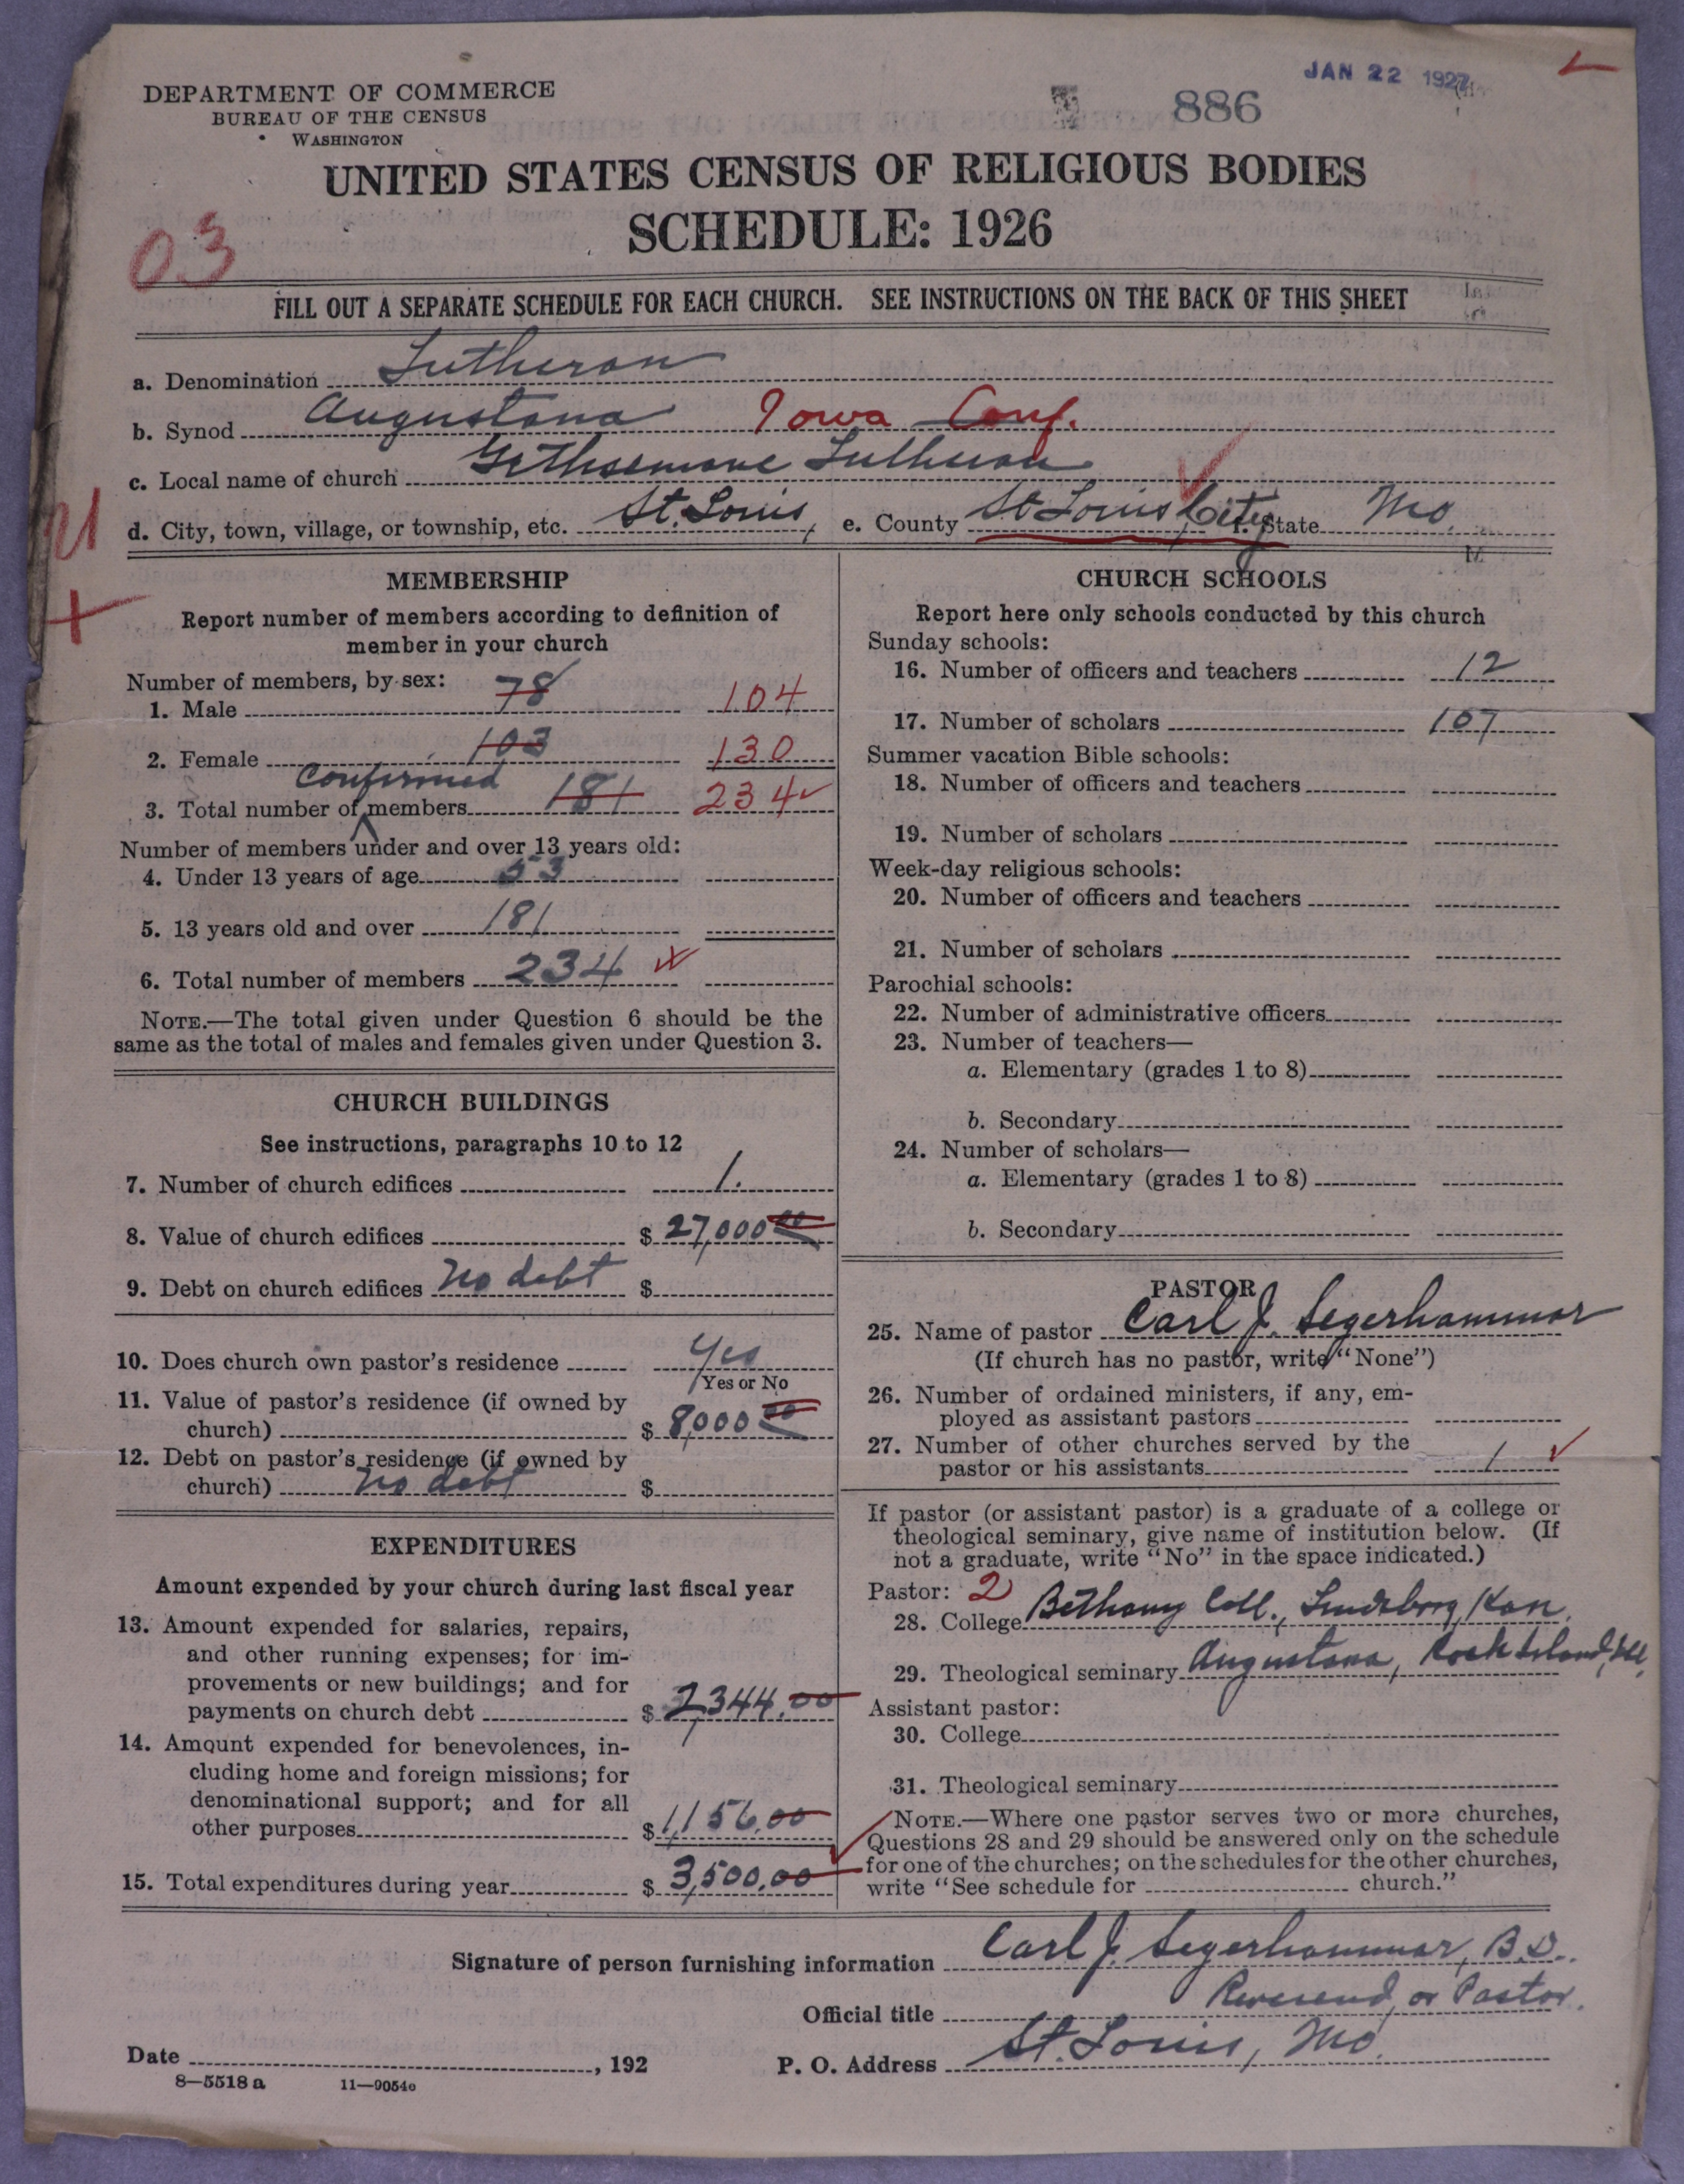 JAN 22 1927
886
DEPARTMENT OF COMMERCE
BUREAU OF THE CENSUS
WASHINGTON
UNITED STATES CENSUS OF RELIGIOUS BODIES
SCHEDULE: 1926
03
FILL OUT A SEPARATE SCHEDULE FOR EACH CHURCH. SEE INSTRUCTIONS ON THE BACK OF THIS SHEET
a. Denomination Lutheran
b. Synod Augustana Iowa Conf.
c. Local name of church Gethsemane Lutheran
d. City, town, village, or township, etc. St. Louis, e. County St Louis City f. State Mo.
MEMBERSHIP
Report number of members according to definition of
member in your church
Number of members, by sex:
1. Male 78 104
2. Female 103 130
Confirmed
3. Total number of members 181 234
Number of members under and over 13 years old:
4. Under 13 years of age 53
5. 13 years old and over 181
6. Total number of members 234
NOTE.—The total given under Question 6 should be the
same as the total of males and females given under Question 3.
CHURCH BUILDINGS
See instructions, paragraphs 10 to 12
7. Number of church edifices 1.
8. Value of church edifices $ 27,000 00
9. Debt on church edifices No debt $
10. Does church own pastor's residence Yes
Yes or No
11. Value of pastor's residence (if owned by
church) $ 8,000 00
12. Debt on pastor's residence (if owned by
church) No debt $
EXPENDITURES
Amount expended by your church during last fiscal year
13. Amount expended for salaries, repairs,
and other running expenses; for im-
provements or new buildings; and for
payments on church debt $ 2,344.00
14. Amount expended for benevolences, in-
cluding home and foreign missions; for
denominational support; and for all
other purposes $ 1,156.00
15. Total expenditures during year $ 3,500.00
CHURCH SCHOOLS
Report here only schools conducted by this church
Sunday schools:
16. Number of officers and teachers 12
17. Number of scholars 107
Summer vacation Bible schools:
18. Number of officers and teachers
19. Number of scholars
Week-day religious schools:
20. Number of officers and teachers
21. Number of scholars
Parochial schools:
22. Number of administrative officers
23. Number of teachers—
a. Elementary (grades 1 to 8)
b. Secondary
24. Number of scholars—
a. Elementary (grades 1 to 8)
b. Secondary
PASTOR
25. Name of pastor Carl J. Segerhammar
(If church has no pastor, write "None")
26. Number of ordained ministers, if any, em-
ployed as assistant pastors
27. Number of other churches served by the
pastor or his assistants 1
If pastor (or assistant pastor) is a graduate of a college or
theological seminary, give name of institution below. (If
not a graduate, write "No" in the space indicated.)
Pastor: 2
28. College Bethany Coll., Lindsborg, Kan.
29. Theological seminary Augustana, Rock Island, Ill.
Assistant pastor:
30. College
31. Theological seminary
NOTE.—Where one pastor serves two or more churches,
Questions 28 and 29 should be answered only on the schedule
for one of the churches; on the schedules for the other churches,
write "See schedule for church."
Signature of person furnishing information Carl J. Segerhammar, B.D.
Official title Reverend, or Pastor.
Date , 192 P. O. Address St. Louis, Mo.
8—5518 a 11—9054c